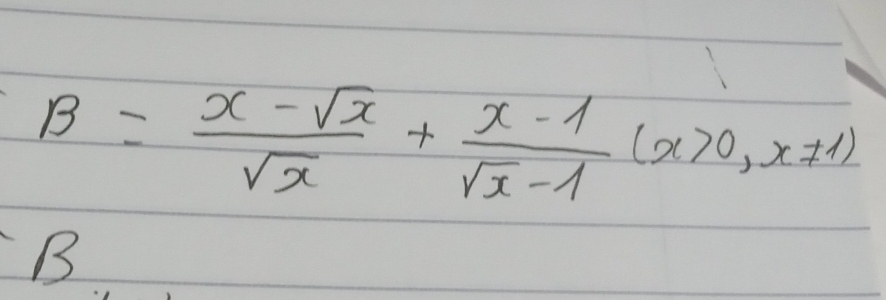 B = \frac{x - \sqrt{x}}{\sqrt{x}} + \frac{x - 1}{\sqrt{x} - 1} (x > 0, x ≠ 1)
B